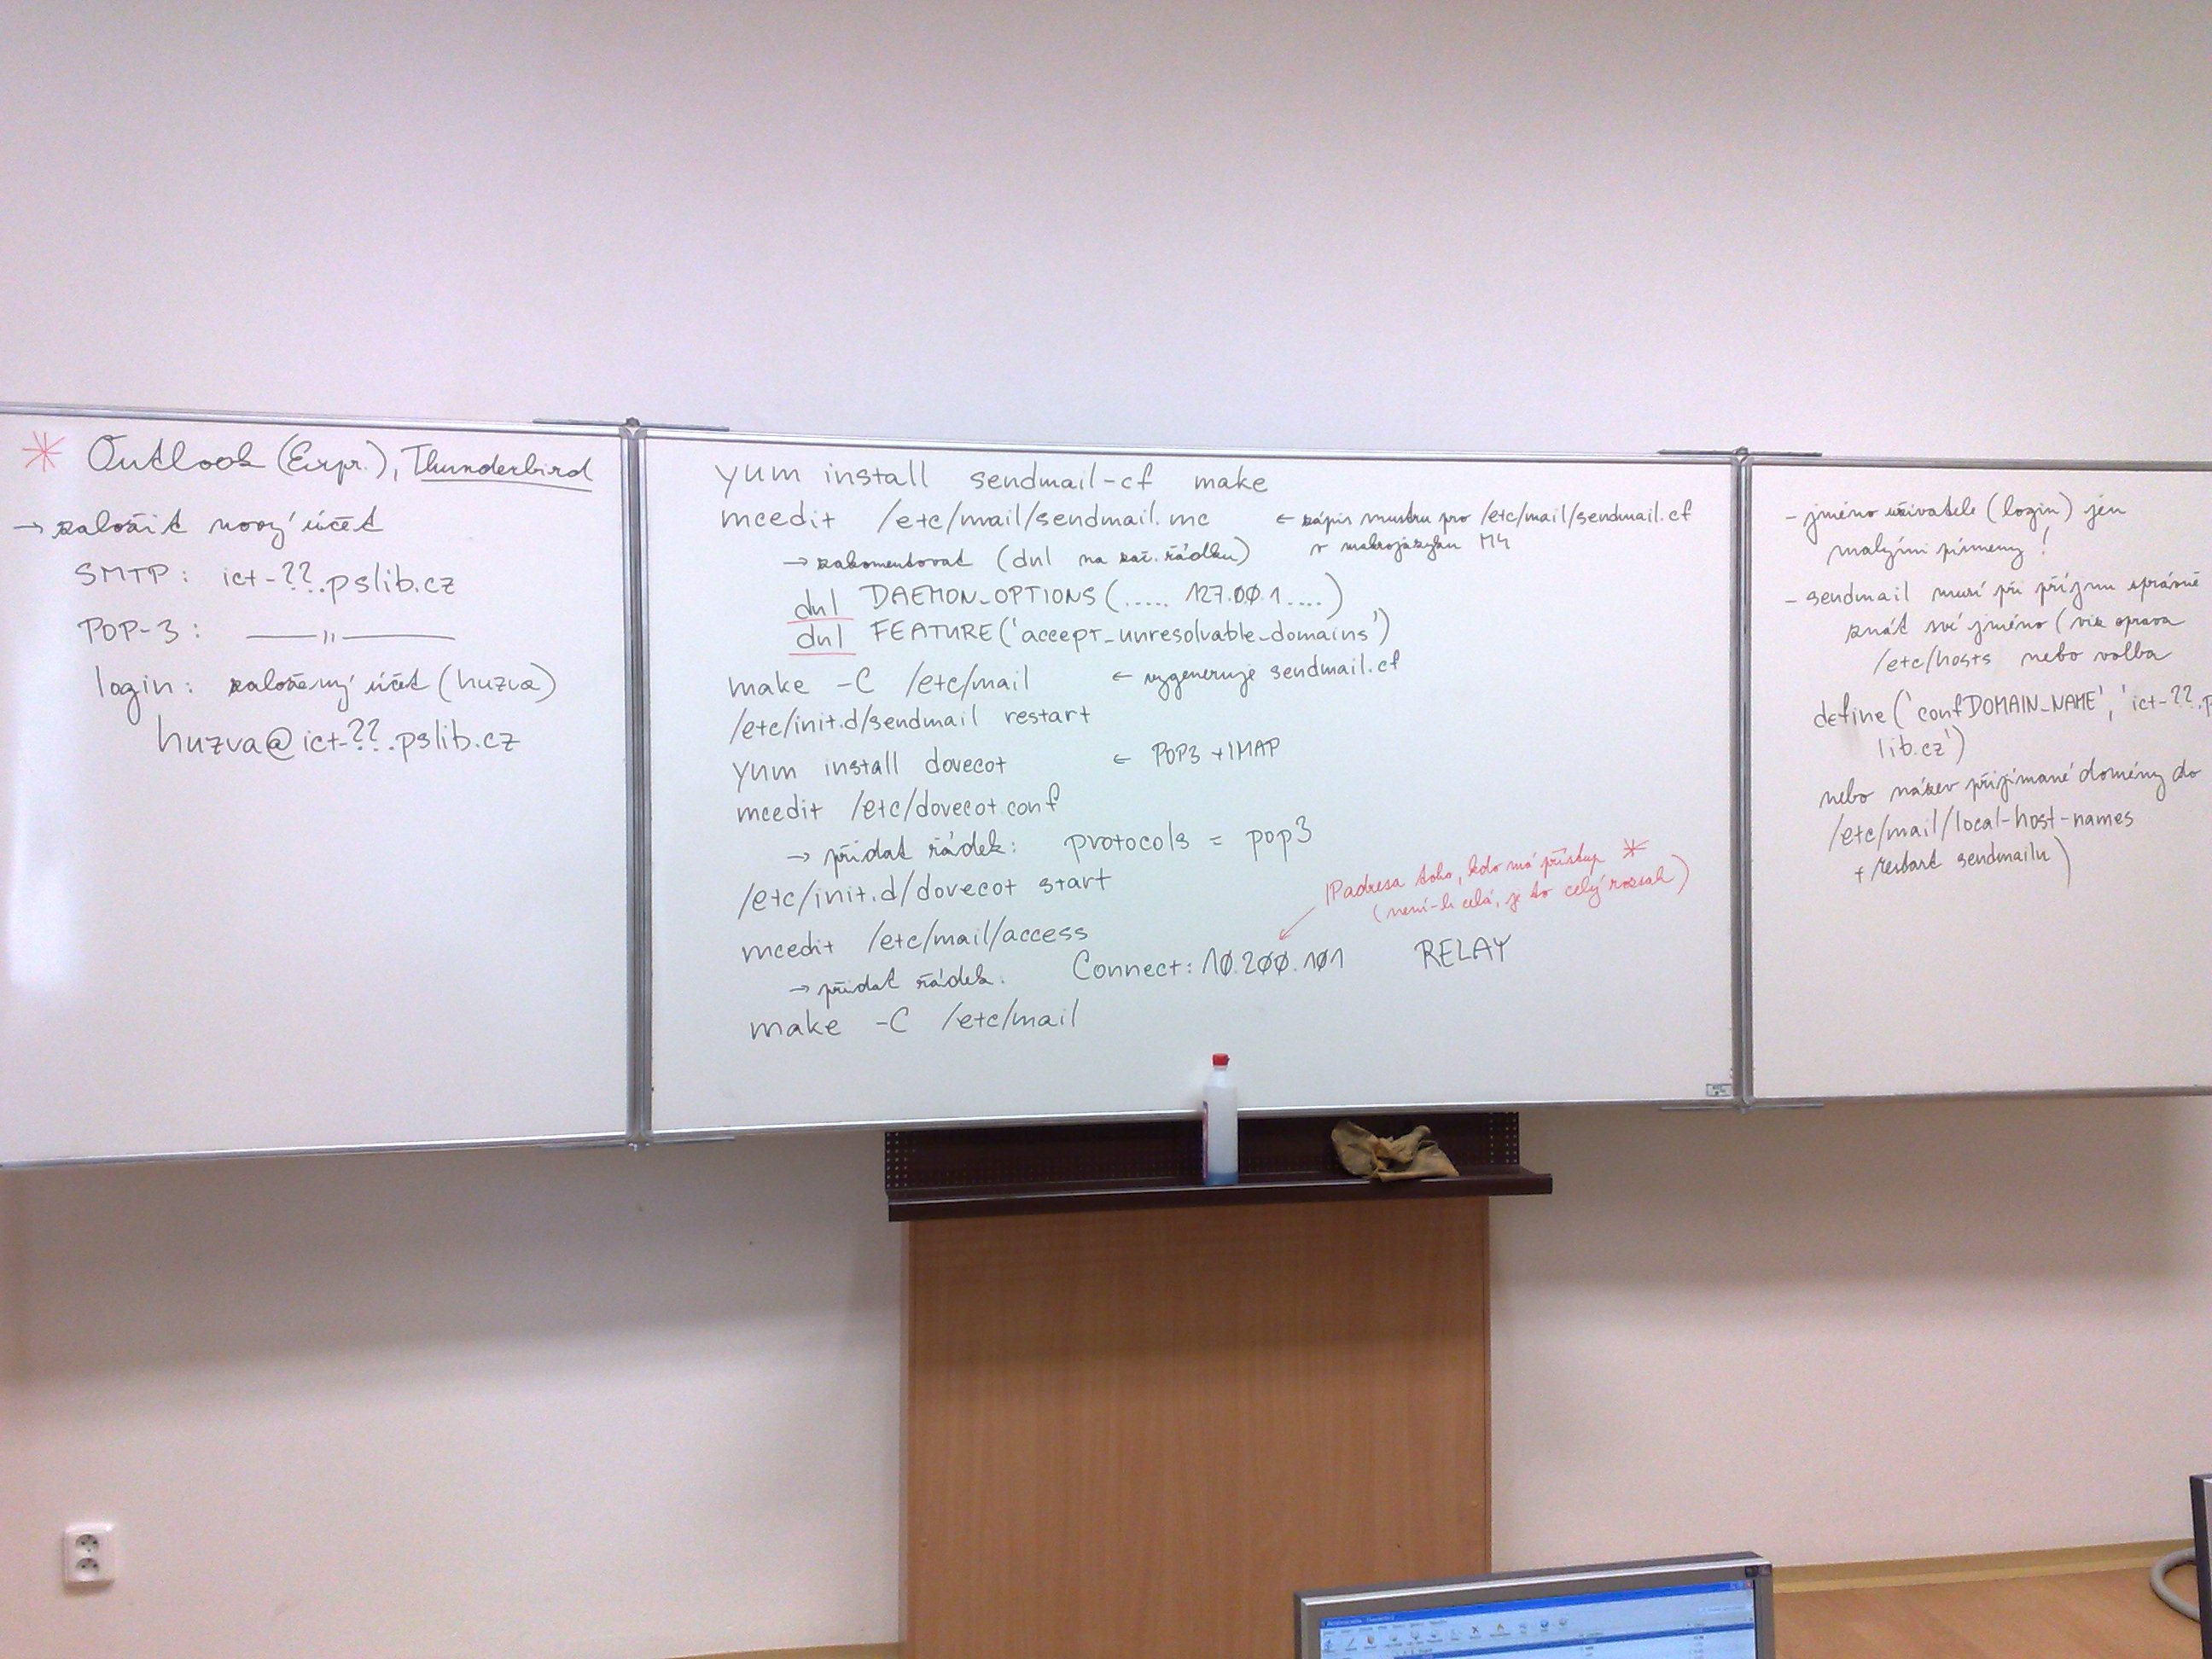 * Outlook (Expr.), Thunderbird
→ založit nový účet
SMTP: ict-??.pslib.cz
POP-3: ——〃——
login: založený účet (huzva)
huzva@ict-??.pslib.cz
yum install sendmail-cf make
mcedit /etc/mail/sendmail.mc ← zápis mustru pro /etc/mail/sendmail.cf
v makrojazyku M4
→ zakomentovat (dnl na zač. řádku)
dnl DAEMON_OPTIONS(..... 127.0.0.1....)
dnl FEATURE('accept_unresolvable_domains')
make -C /etc/mail ← vygeneruje sendmail.cf
/etc/init.d/sendmail restart
yum install dovecot ← POP3 + IMAP
mcedit /etc/dovecot.conf
→ přidat řádek: protocols = pop3
/etc/init.d/dovecot start
IPadresa toho, kdo má přístup *
(není-li celá, je to celý rozsah)
mcedit /etc/mail/access
→ přidat řádek: Connect: 10.200.101 RELAY
make -C /etc/mail
- jméno uživatele (login) jen
malými písmeny!
- sendmail musí při příjmu správně
znát své jméno (viz oprava
/etc/hosts nebo volba
define('confDOMAIN_NAME', 'ict-??.p
lib.cz')
nebo název přijímané domény do
/etc/mail/local-host-names
+ restart sendmailu)